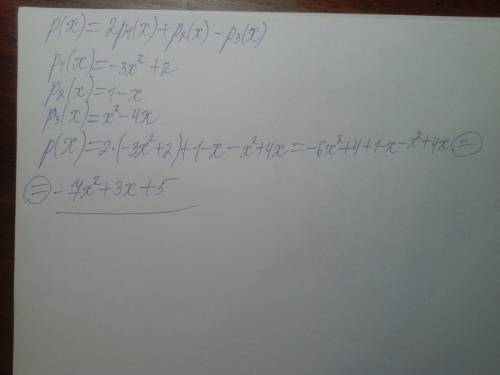 p(x) = 2p₁(x) + p₂(x) - p₃(x)
p₁(x) = -3x² + 2
p₂(x) = 1 - x
p₃(x) = x² - 4x
p(x) = 2·(-3x² + 2) + 1 - x - x² + 4x = -6x² + 4 + 1 - x - x² + 4x =
= -7x² + 3x + 5